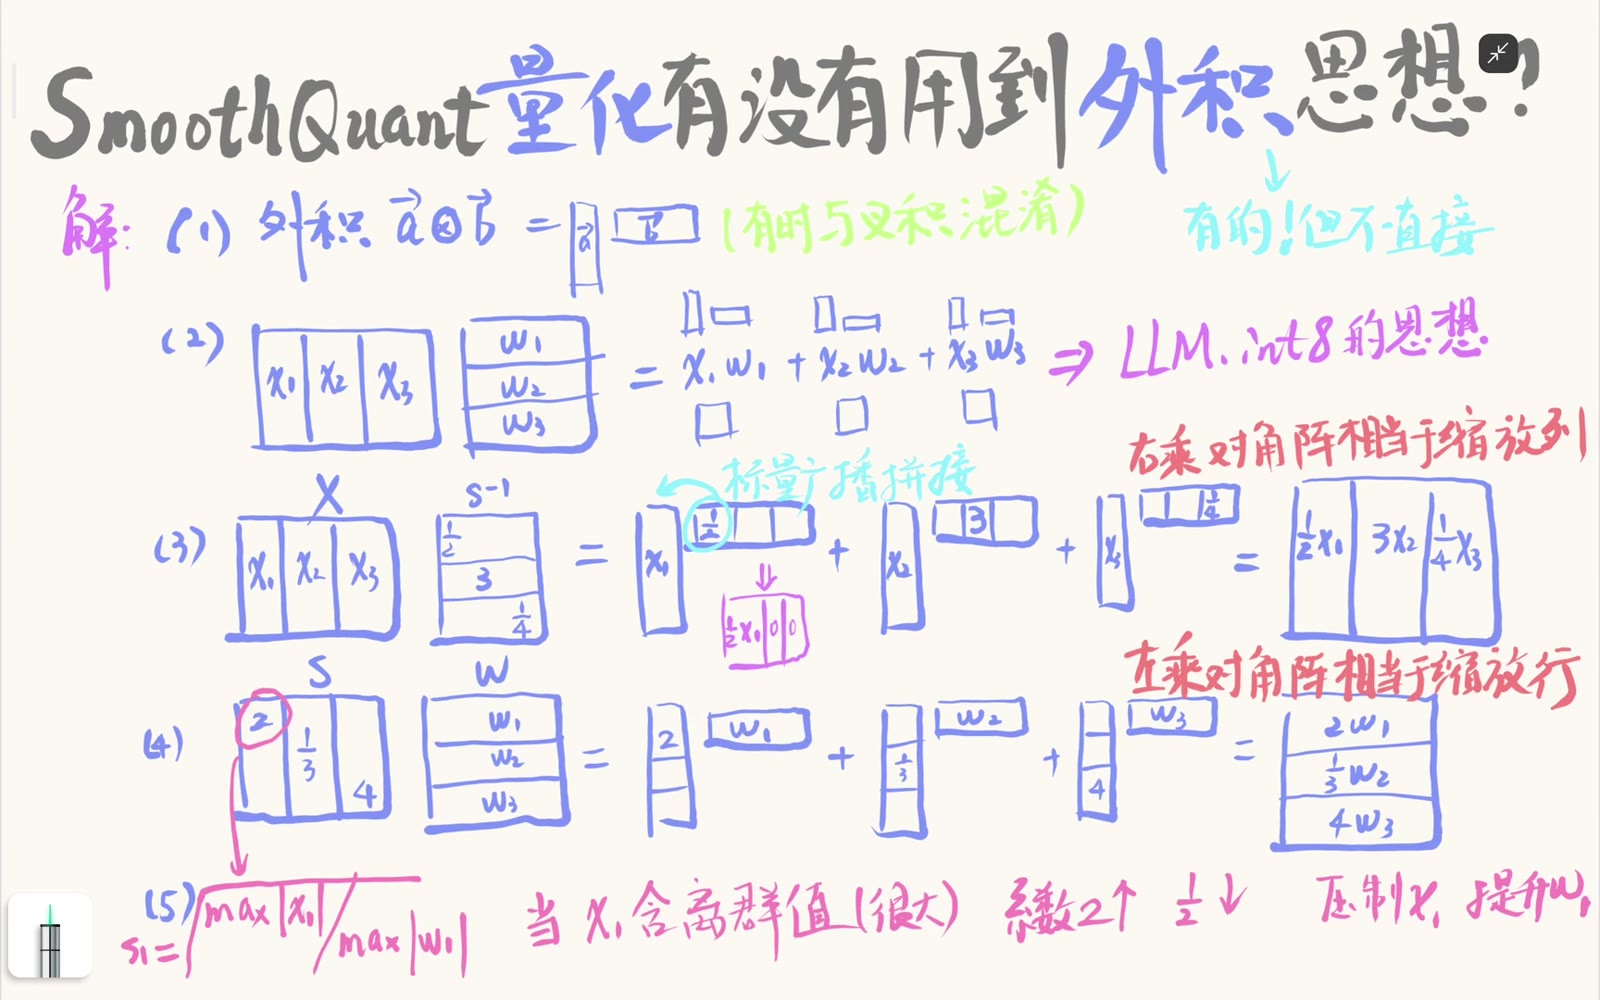 SmoothQuant量化有没有用到外积思想?
解: (1) 外积 a⊗b = a b (有时与叉积混淆) 有的!但不直接
(2) x₁ x₂ x₃ w₁ w₂ w₃ = x₁w₁ + x₂w₂ + x₃w₃ ⇒ LLM.int8的思想
右乘对角阵相当于缩放列
标量广播拼接
X S⁻¹
(3) x₁ x₂ x₃ 1/2 3 1/4 = x₁ 1/2 + x₂ 3 + x₃ 1/4 = 1/2x₁ 3x₂ 1/4x₃
⇓
1/2x₁ 0 0
左乘对角阵相当于缩放行
S W
(4) 2 1/3 4 w₁ w₂ w₃ = 2 w₁ + 1/3 w₂ + 4 w₃ = 2w₁ 1/3w₂ 4w₃
(5) s₁ = √max|x₁|/max|w₁| 当 x₁ 含离群值(很大) 系数2↑ 1/2↓ 压制x₁ 提升w₁